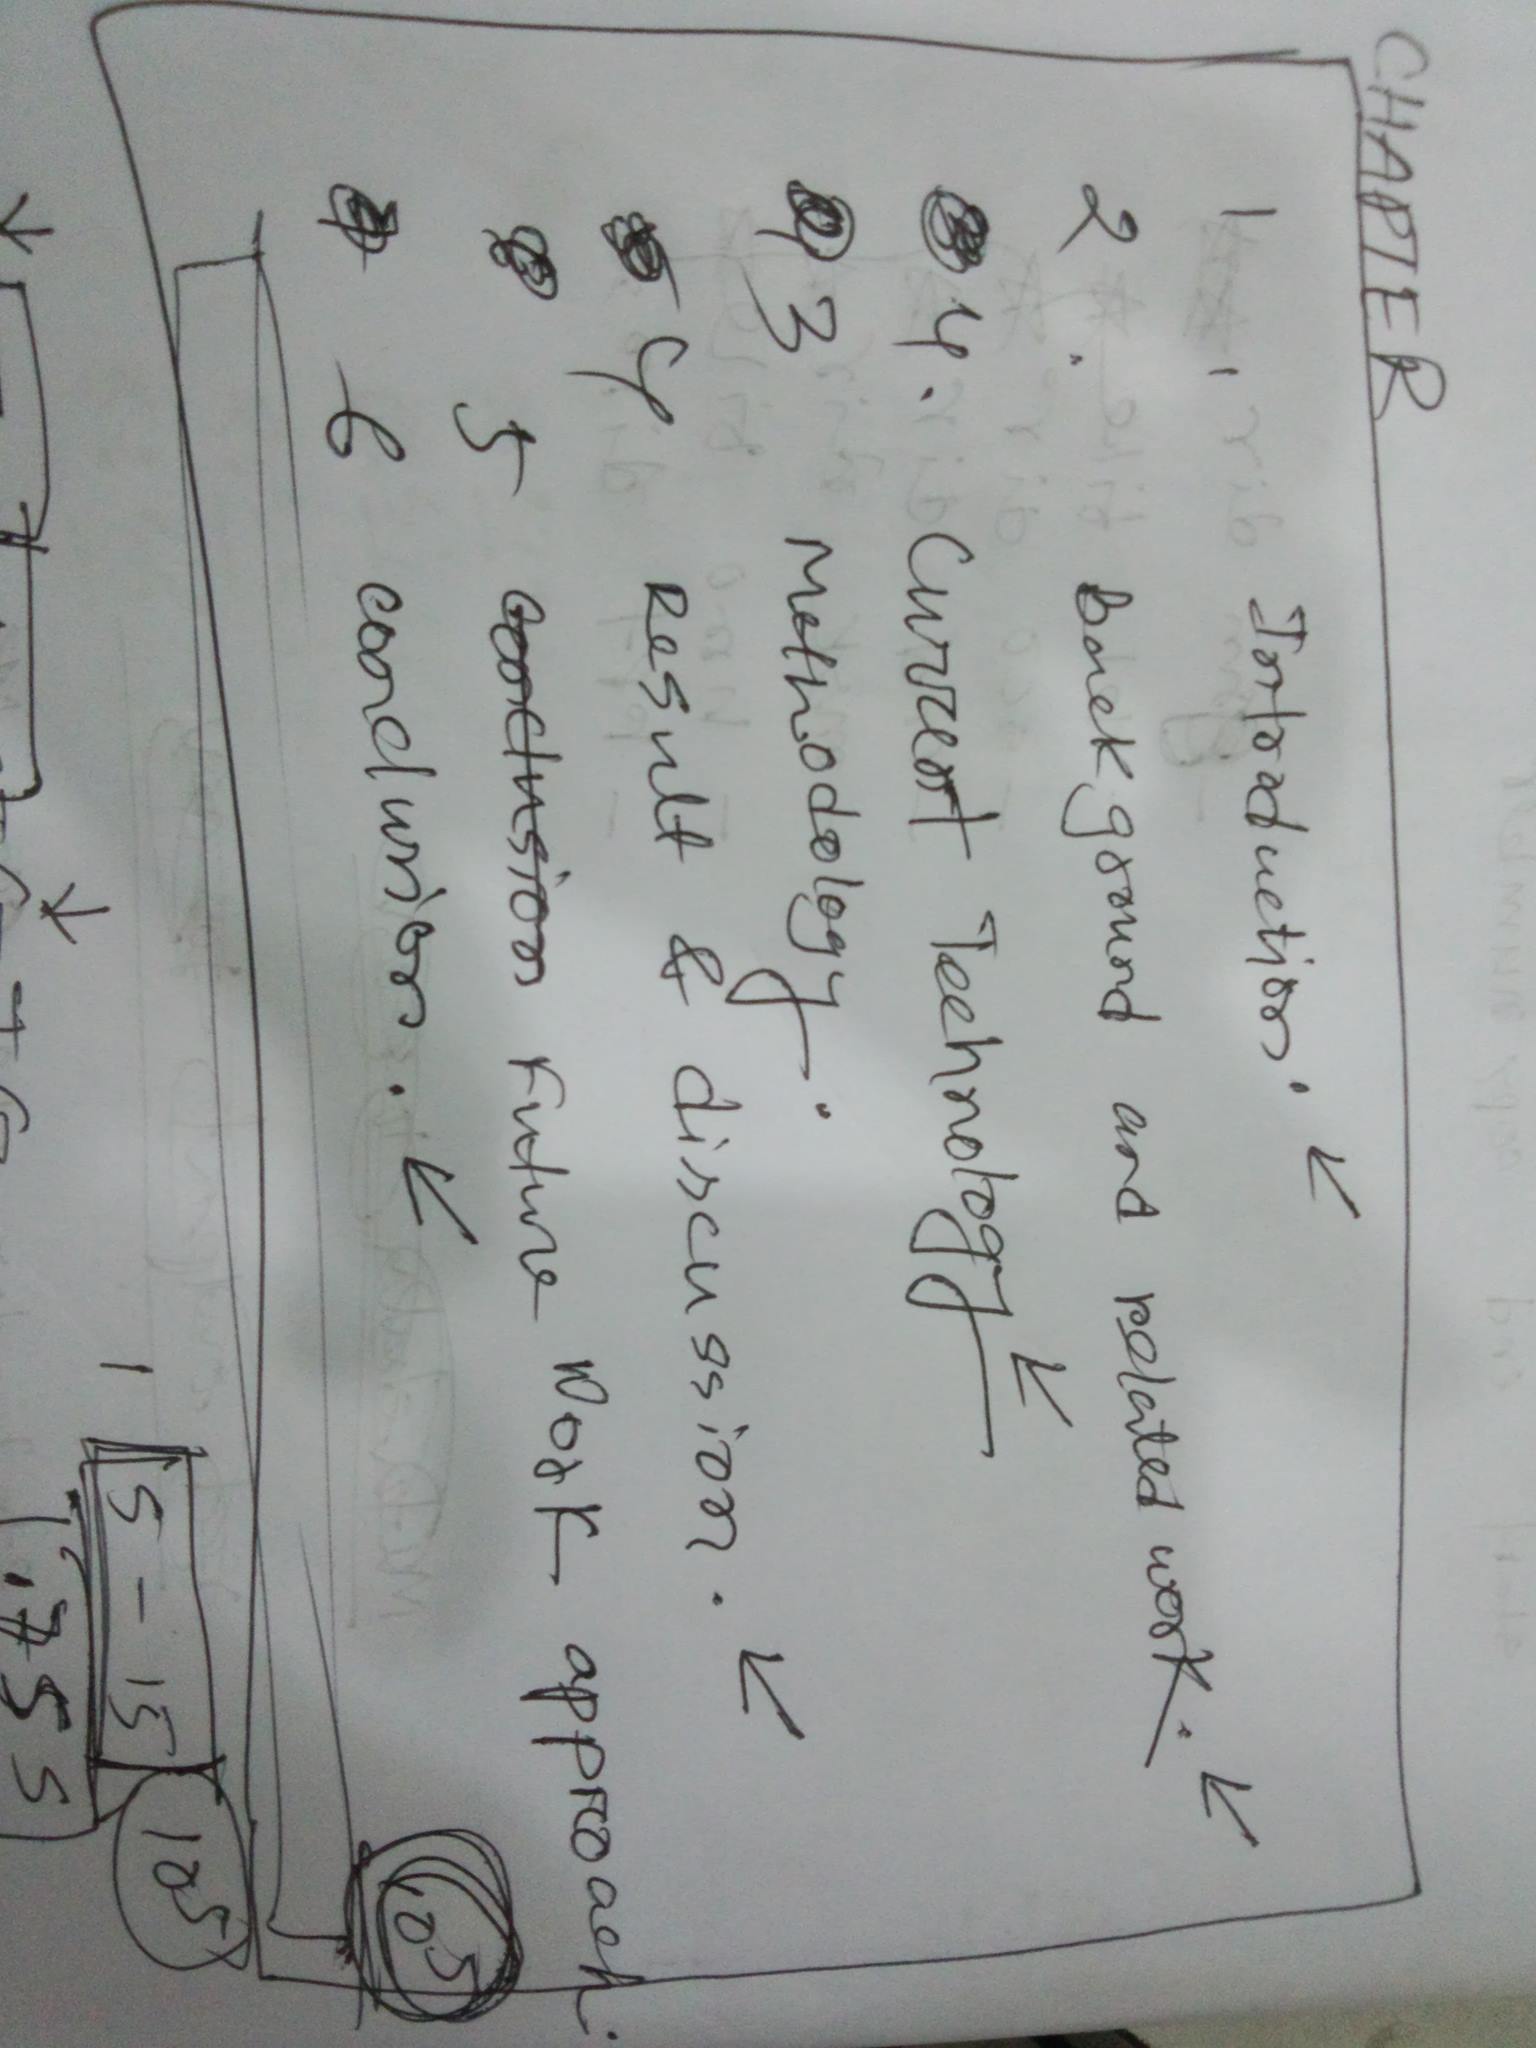 CHAPTER
1. Introduction.
2. background and related work.
4. Current Technology
3 Methodology.
4 Result & discussion.
5 conclusion Future work approach.
6 conclusion.
.05
1 5-15 105
1.75 5